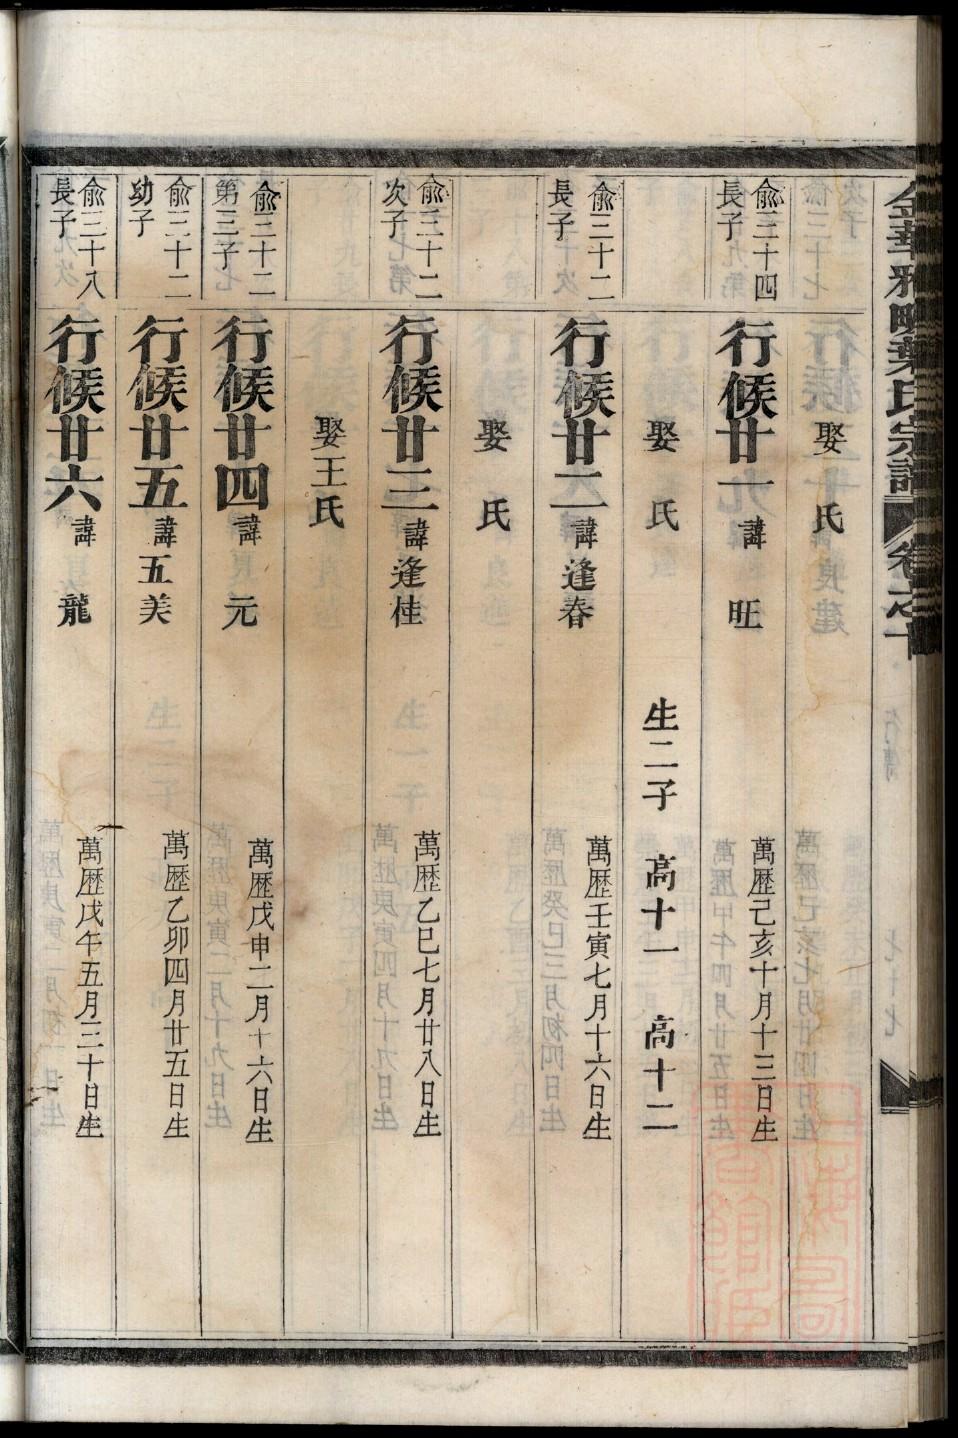 金華雅畈葉氏宗譜 卷之十
娶 氏
俞三十四長子
行候廿一 諱旺 萬歷己亥十月十三日生
娶 氏 生二子 高十一 高十二
俞三十二長子
行候廿二 諱逢春 萬歷壬寅七月十六日生
娶 氏
俞三十二次子
行候廿三 諱逢桂 萬歷乙巳七月廿八日生
娶王氏
俞三十二第三子
行候廿四 諱元 萬歷戊申二月十六日生
俞三十二幼子
行候廿五 諱五美 萬歷乙卯四月廿五日生
俞三十八長子
行候廿六 諱龍 萬歷戊午五月三十日生